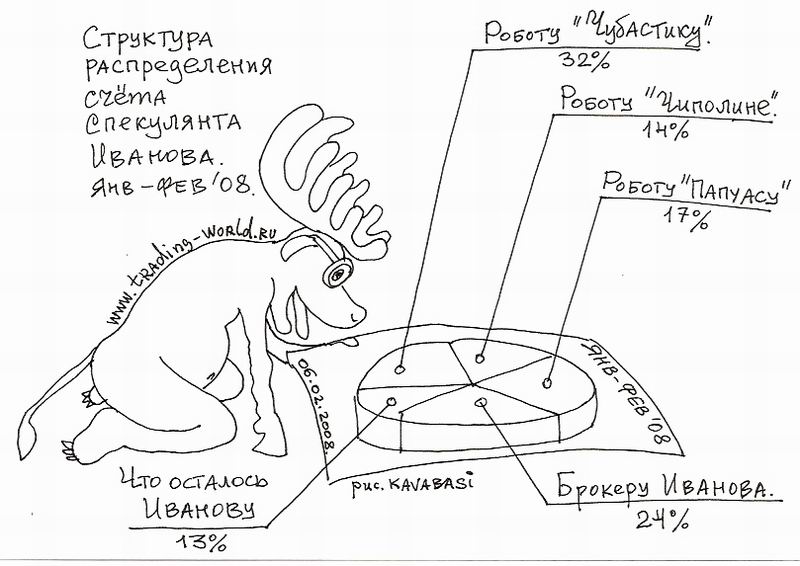 Структура
распределения
счёта
Спекулянта
Иванова.
Янв-Фев'08.
Роботу "Чубастику".
32%
Роботу "Чиполине".
14%
Роботу "Папуасу"
17%
www.trading-world.ru
06.02.2008.
Янв-Фев'08
Что осталось
Иванову
13%
рис. KAVABASI
Брокеру Иванова.
24%